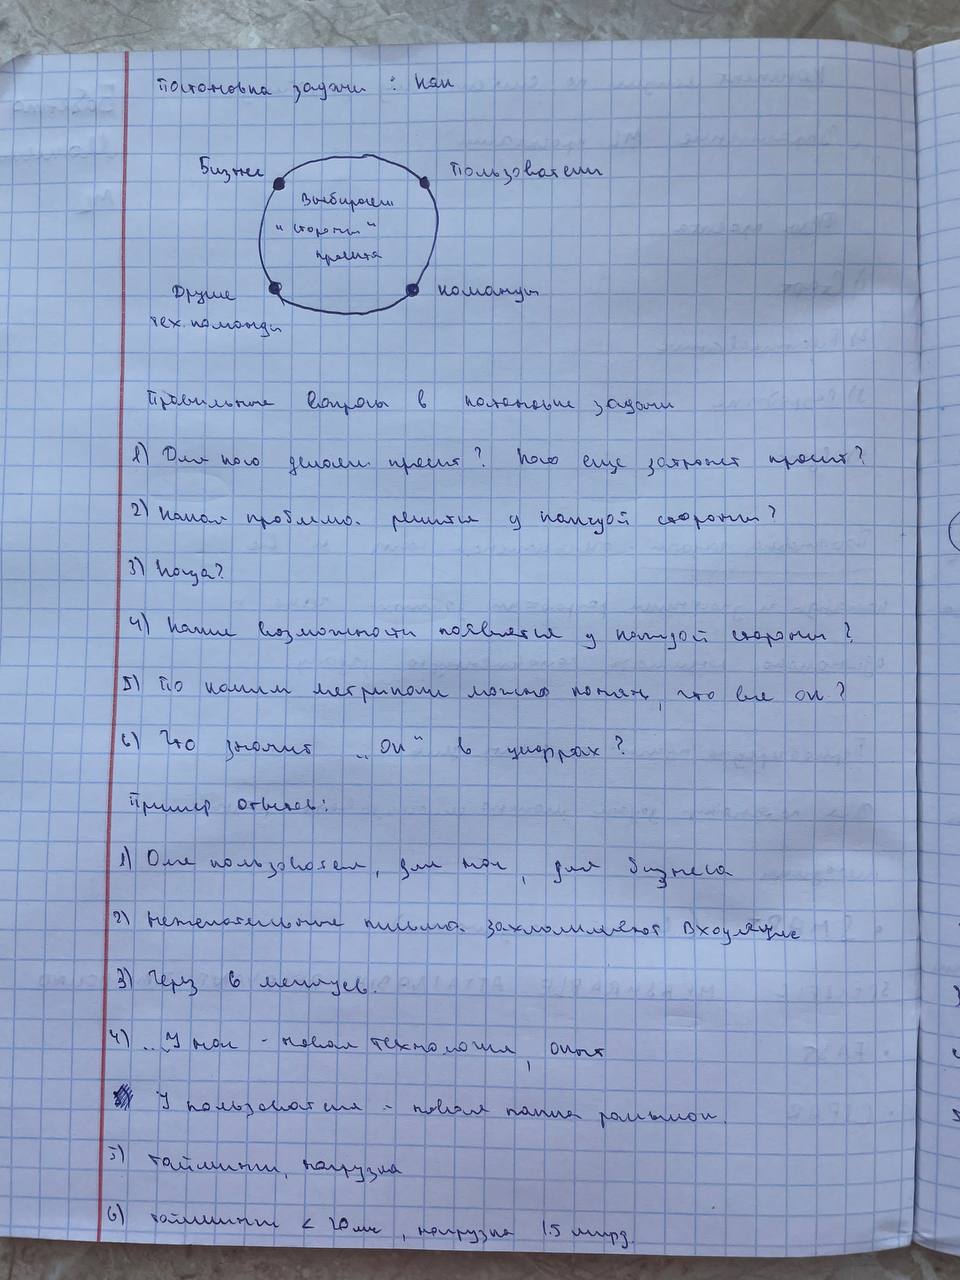 Постановка задачи : как
Бизнес
Пользователи
Выбираем
"стороны"
проекта
Другие
тех. команды
команды
Правильные вопросы в постановке задачи
1) Для кого делаем проект? Кого еще затронет проект?
2) Какая проблема решится у каждой стороны?
3) Когда?
4) Какие возможности появятся у каждой стороны?
5) По каким метрикам можно понять, что все ок?
6) Что значит „ок" в цифрах?
Пример ответов:
1) Для пользователя, для нас, для бизнеса
2) нежелательные письма захламляют входящие
3) Через 6 месяцев.
4) .. У нас - новая технология, опыт
У пользователя - новая папка
5) тайминги, нагрузка
6) тайминги < 20 мс, нагрузка 1.5 млрд.